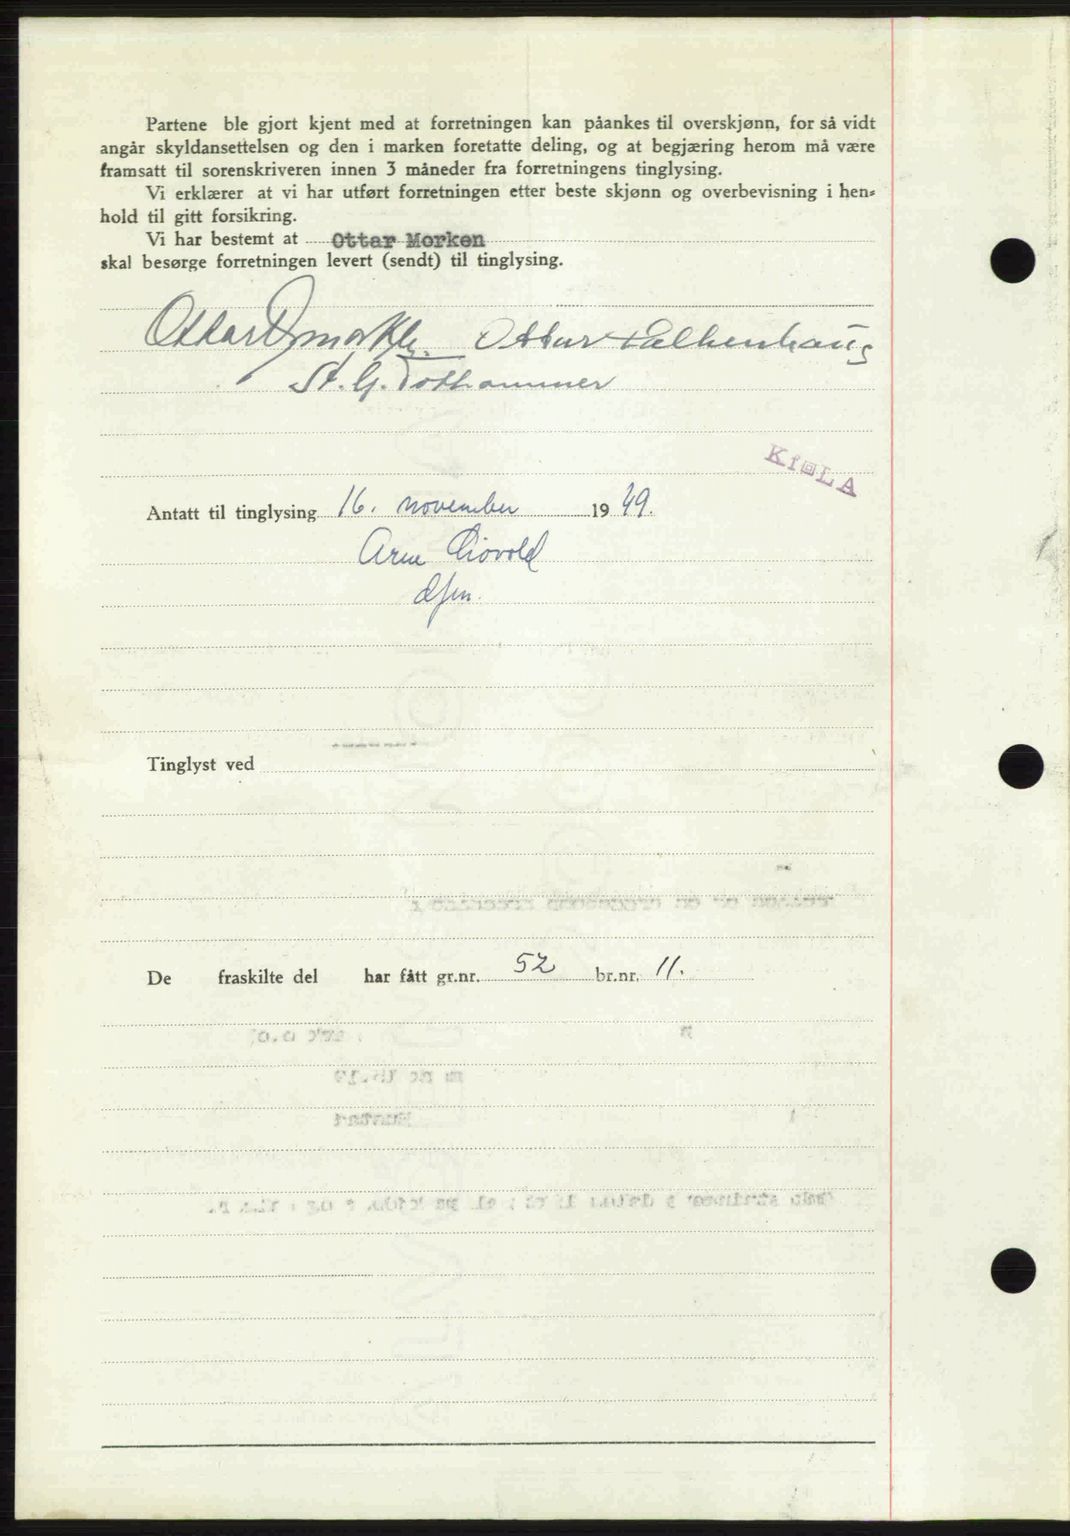 Partene ble gjort kjent med at forretningen kan påankes til overskjønn, for så vidt
angår skyldansettelsen og den i marken foretatte deling, og at begjæring herom må være
framsatt til sorenskriveren innen 3 måneder fra forretningens tinglysing.
Vi erklærer at vi har utført forretningen etter beste skjønn og overbevisning i hen-
hold til gitt forsikring.
Vi har bestemt at Ottar Morken
skal besørge forretningen levert (sendt) til tinglysing.
Ottar Ottar Falkenhaug
St. G.
KfoLA
Antatt til tinglysing 16. november 1949.
Arne
dfm.
Tinglyst ved
De fraskilte del har fått gr.nr. 52 br.nr. 11.